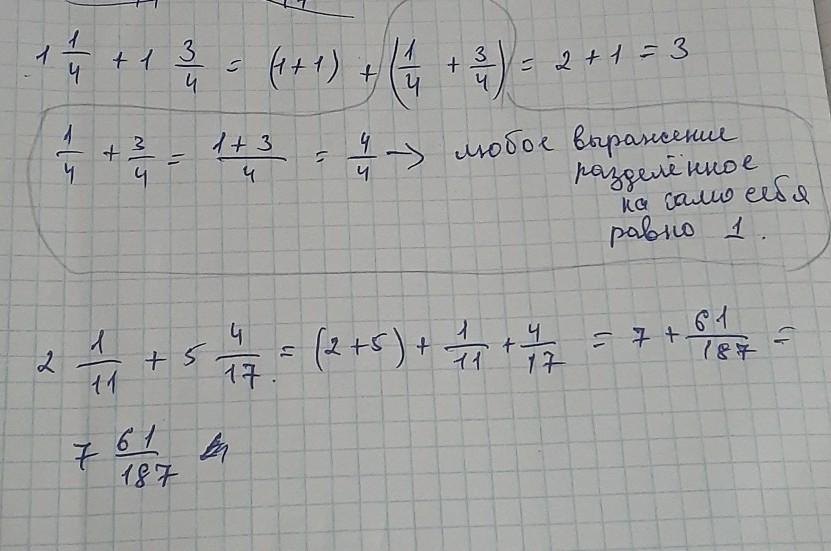 1 1/4 + 1 3/4 = (1+1) + (1/4 + 3/4) = 2 + 1 = 3
1/4 + 3/4 = (1 + 3)/4 = 4/4 → любое выражение
разделённое
на само себя
равно 1.
2 1/11 + 5 4/17 = (2+5) + 1/11 + 4/17 = 7 + 61/187 =
7 61/187